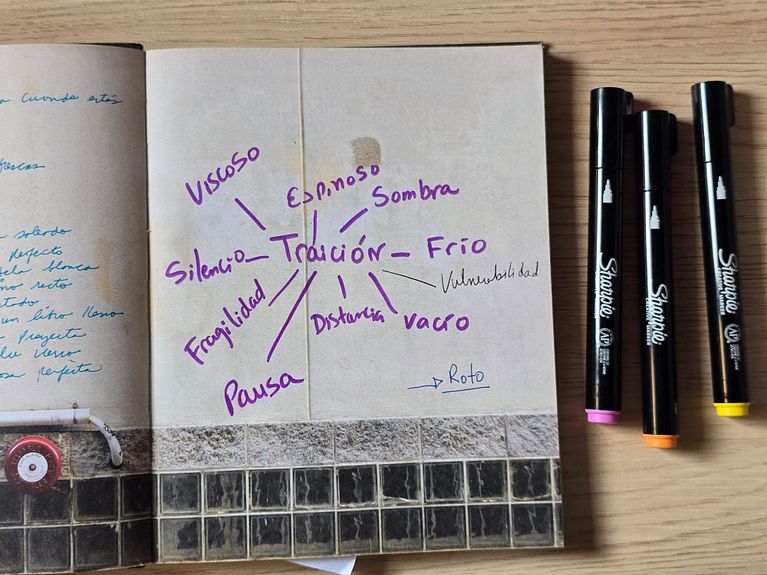 cuando estás
frescas
perfecto
blanca
recto
un libro lleno
perfecta
Viscoso
Espinoso
Sombra
Silencio
Traición
Frío
Vulnerabilidad
Fragilidad
Distancia
vacío
Pausa
→ Roto
Sharpie
Sharpie
Sharpie